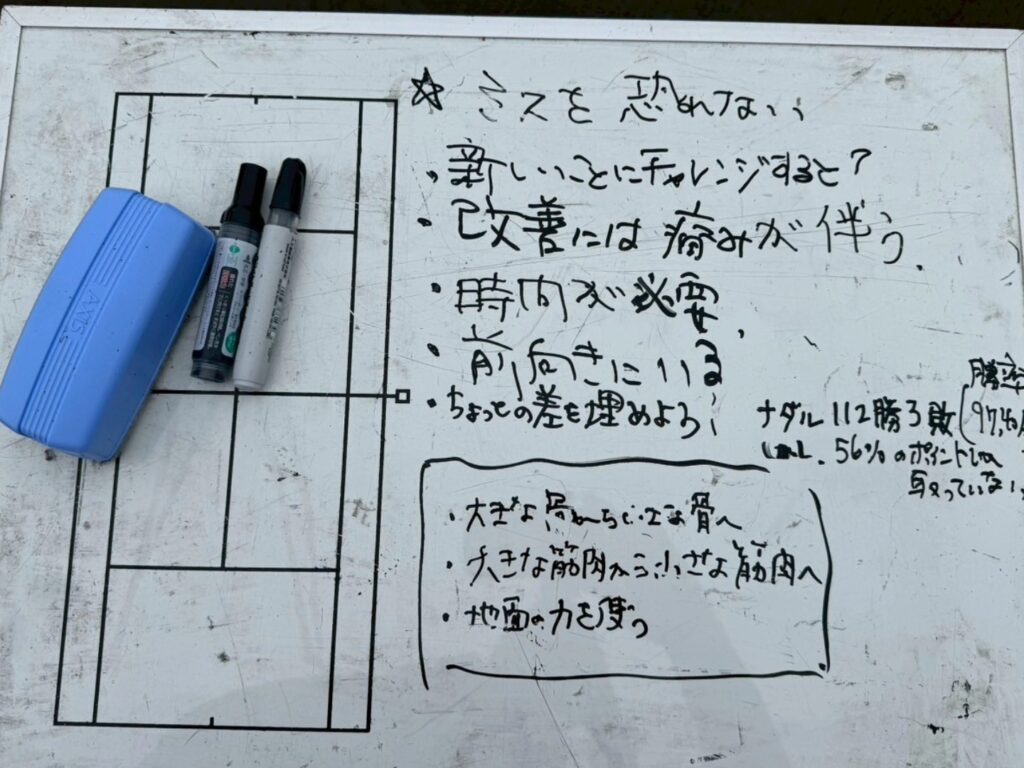 AXIS
☆ ミスを恐れない
・新しいことにチャレンジすると?
・改善には痛みが伴う.
・時間が必要.
・前向きにいる
・ちょっとの差を埋めよう
勝率
ナダル 112勝3敗 (97.4%
しかし. 56%のポイントしか
取っていない.
・大きな骨から小さな骨へ
・大きな筋肉から小さな筋肉へ
・地面の力を使う